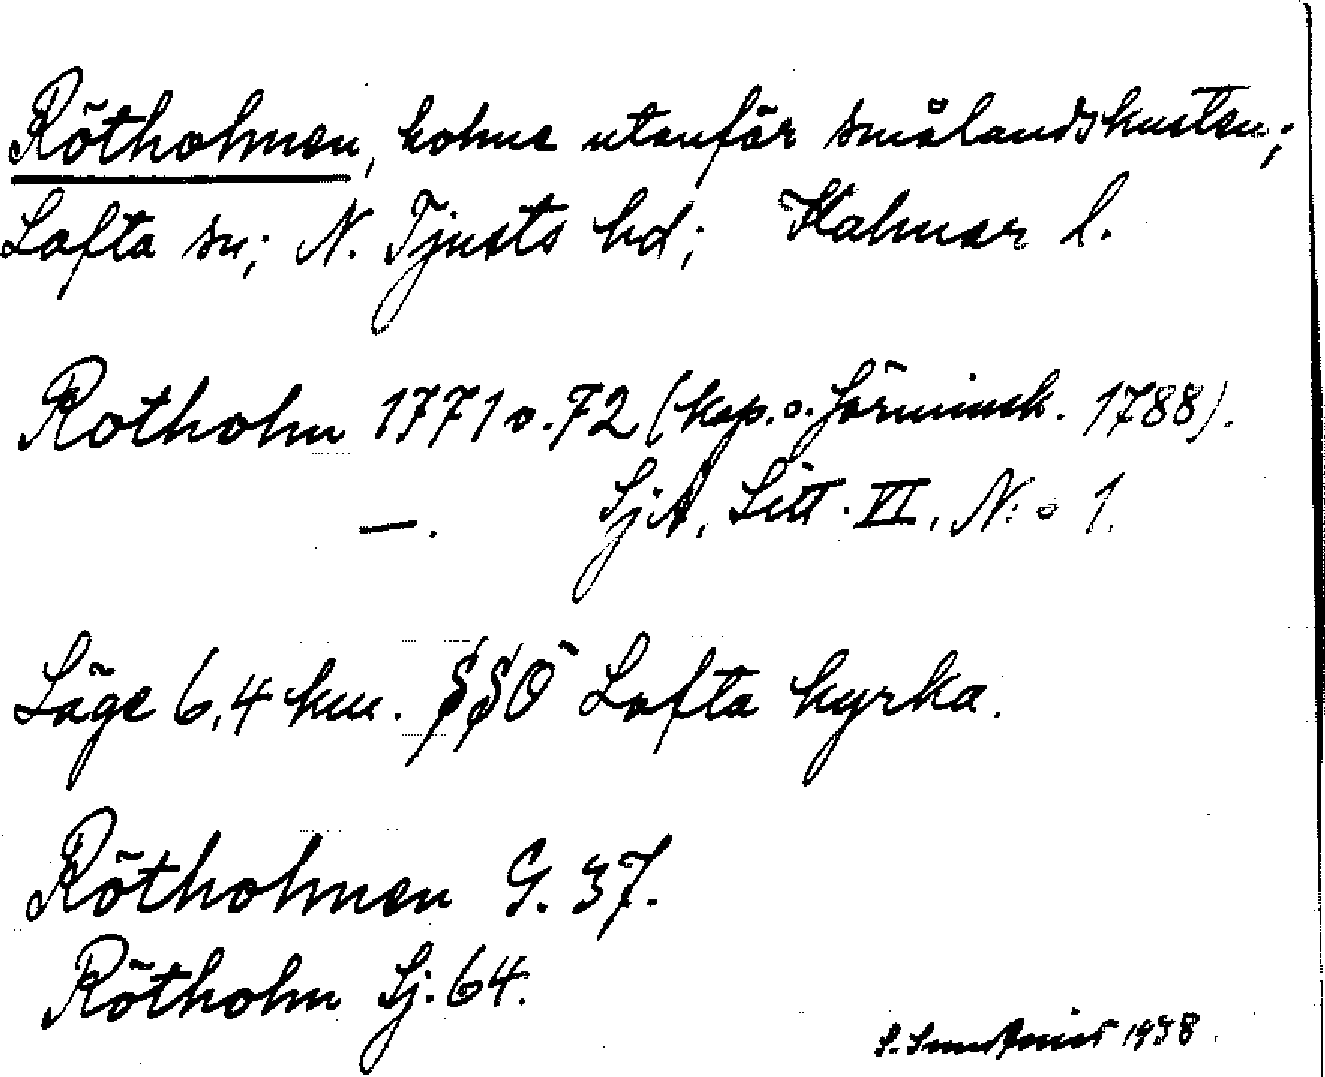 Rötholmen, holme utanför smålandskusten;
Lofta sn; N. Tjusts hd; Kalmar l.
Rotholm 1771 o. 72 (kop. o. förminsk. 1788).
—. SjA, Litt. VI, N:o 1.
Läge 6,4 km. SSÖ Lofta kyrka.
Rötholmen G. 37.
Rötholm Sj. 64.
1938